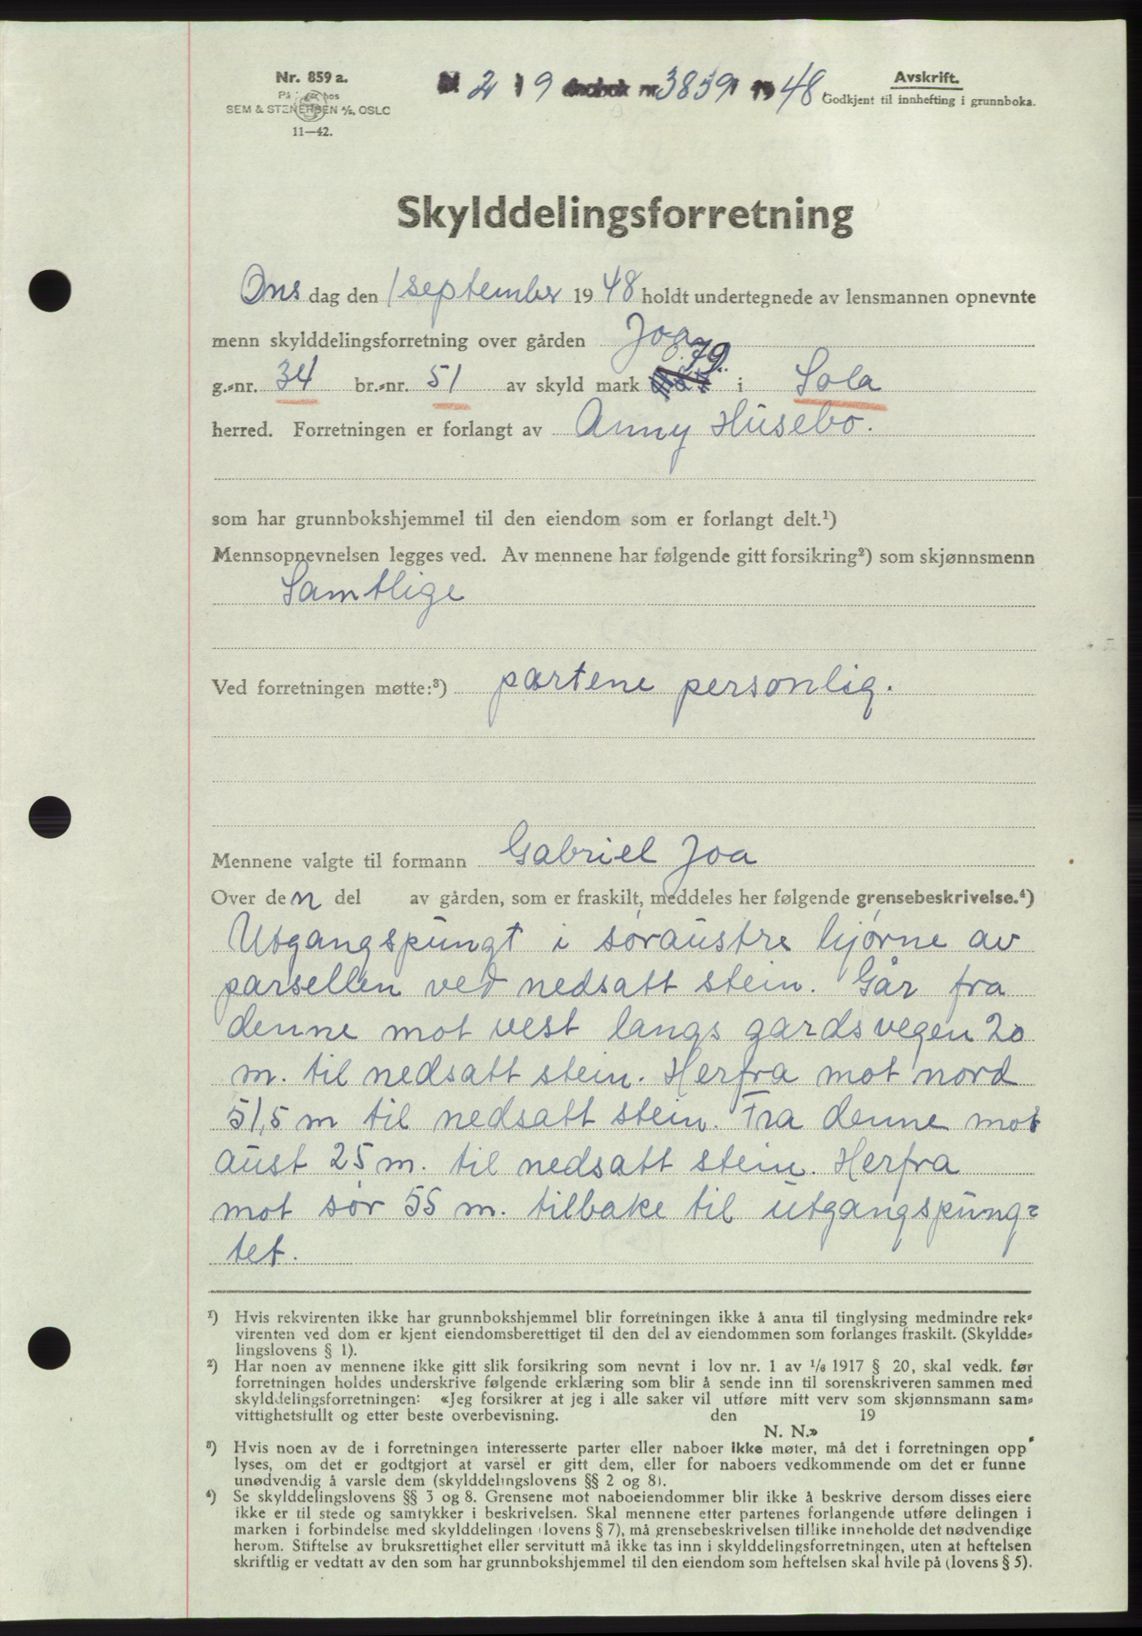 Nr. 859 a.
SEM & STENERSEN A/S, OSLO
11—42.
2 / 9 dagbok nr 3839 19 48
Avskrift.
Godkjent til innhefting i grunnboka.
Skylddelingsforretning
Ons dag den 1 september 19 48 holdt undertegnede av lensmannen opnevnte
menn skylddelingsforretning over gården Joa
g.-nr. 34 br.-nr. 51 av skyld mark 0.79. i Sola
herred. Forretningen er forlangt av Anny Húsebo.
som har grunnbokshjemmel til den eiendom som er forlangt delt.¹)
Mennsopnevnelsen legges ved. Av mennene har følgende gitt forsikring²) som skjønnsmenn
Samtlige
Ved forretningen møtte:³) partene personlig.
Mennene valgte til formann Gabriel Joa
Over den del av gården, som er fraskilt, meddeles her følgende grensebeskrivelse.⁴)
Utgangspungt i søraustre hjørne av
parsellen ved nedsatt stein. Går fra
denne mot vest langs gardsvegen 20
m. til nedsatt stein. Herfra mot nord
51,5 m til nedsatt stein. Fra denne mot
aust 25 m. til nedsatt stein. Herfra
mot sør 55 m. tilbake til utgangspung-
tet.
¹) Hvis rekvirenten ikke har grunnbokshjemmel blir forretningen ikke å anta til tinglysing medmindre rek-
virenten ved dom er kjent eiendomsberettiget til den del av eiendommen som forlanges fraskilt. (Skyldde-
lingslovens § 1).
²) Har noen av mennene ikke gitt slik forsikring som nevnt i lov nr. 1 av ¹/₆ 1917 § 20, skal vedk. før
forretningen holdes underskrive følgende erklæring som blir å sende inn til sorenskriveren sammen med
skylddelingsforretningen: «Jeg forsikrer at jeg i alle saker vil utføre mitt verv som skjønnsmann sam-
vittighetsfullt og etter beste overbevisning. den 19
N. N.»
³) Hvis noen av de i forretningen interesserte parter eller naboer ikke møter, må det i forretningen opp
lyses, om det er godtgjort at varsel er gitt dem, eller for naboers vedkommende om det er funne
unødvendig å varsle dem (skylddelingslovens §§ 2 og 8).
⁴) Se skylddelingslovens §§ 3 og 8. Grensene mot naboeiendommer blir ikke å beskrive dersom disses eiere
ikke er til stede og samtykker i beskrivelsen. Skal mennene etter partenes forlangende utføre delingen i
marken i forbindelse med skylddelingen (lovens § 7), må grensebeskrivelsen tillike inneholde det nødvendige
herom. Stiftelse av bruksrettighet eller servitutt må ikke tas inn i skylddelingsforretningen, uten at heftelsen
skriftlig er vedtatt av den som har grunnbokshjemmel til den eiendom som heftelsen skal hvile på (lovens § 5).